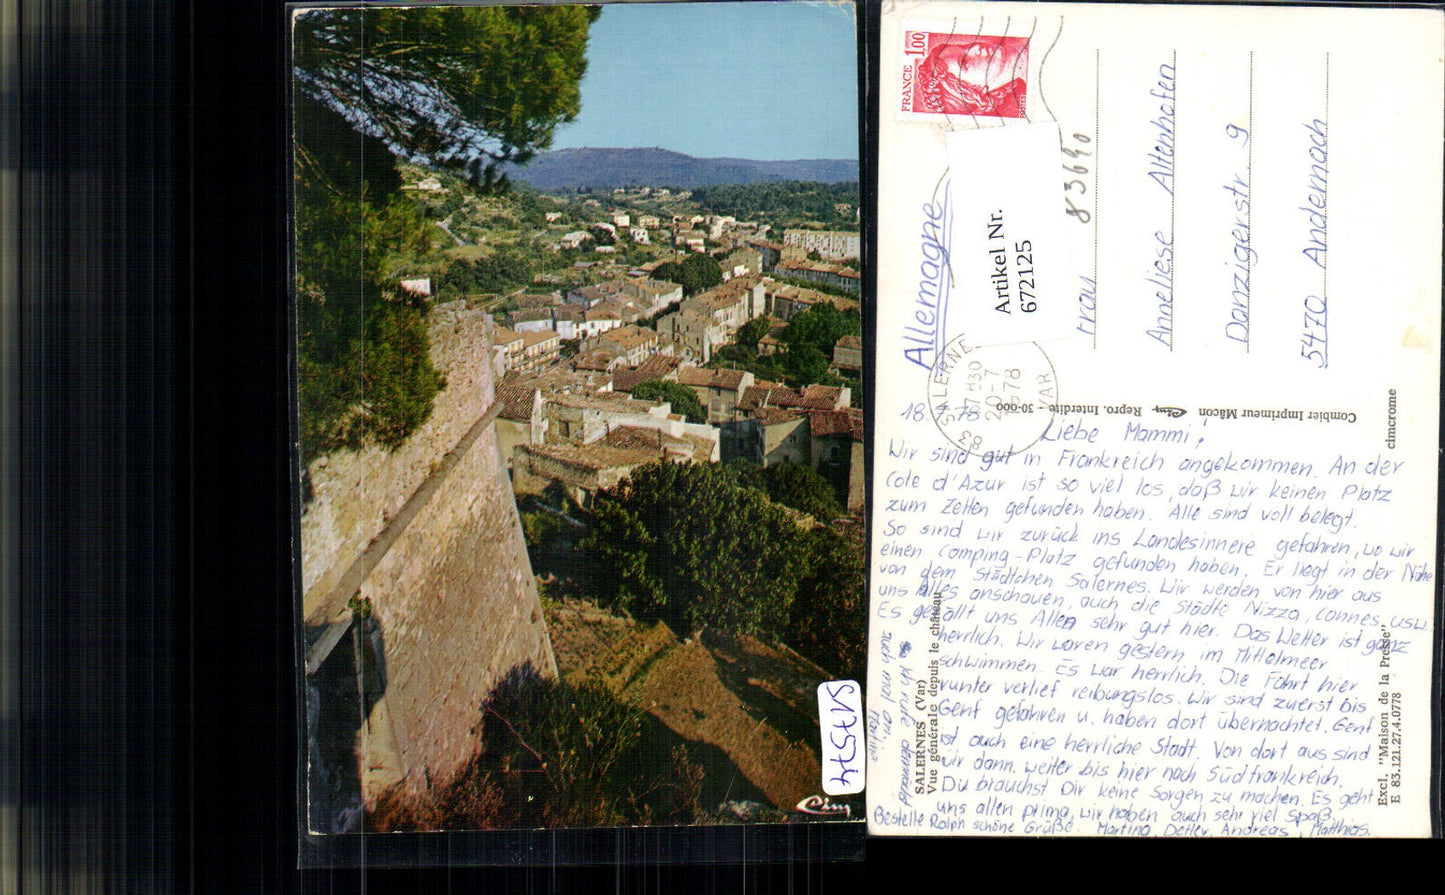 Cim
S17574
FRANCE 1,00
POSTES
Allemagne
Artikel Nr.
672125
83690
Frau
Anneliese Altenhofen
Danzigerstr. 9
5470 Andernach
83 SALERNES
7 H30
20-7
1978
VAR
Combier Imprimeur Mâcon Cim Repro. Interdite - 30-000
cimcrome
18.7.78
Liebe Mammi,
Wir sind gut in Frankreich angekommen. An der
Cote d'Azur ist so viel los, daß wir keinen Platz
zum Zelten gefunden haben. Alle sind voll belegt.
So sind wir zurück ins Landesinnere gefahren, wo wir
einen Camping-Platz gefunden haben. Er liegt in der Nähe
von dem Städtchen Salernes. Wir werden von hier aus
uns alles anschauen, auch die Städte Nizza, Cannes, usw.
Es gefällt uns Allen sehr gut hier. Das Wetter ist ganz
herrlich. Wir waren gestern im Mittelmeer
schwimmen. Es war herrlich. Die Fahrt hier
runter verlief reibungslos. Wir sind zuerst bis
Genf gefahren u. haben dort übernachtet. Genf
ist auch eine herrliche Stadt. Von dort aus sind
wir dann weiter bis hier nach Südfrankreich.
Du brauchst Dir keine Sorgen zu machen. Es geht
uns allen prima, wir haben auch sehr viel Spaß.
Bestelle Ralph schöne Grüße. Martina, Detlev, Andreas, Matthias.
Ich rufe demnächst
auch mal an.
Martina
SALERNES (Var)
Vue générale depuis le château
Excl. "Maison de la Presse"
E 83.121.27.4.0778